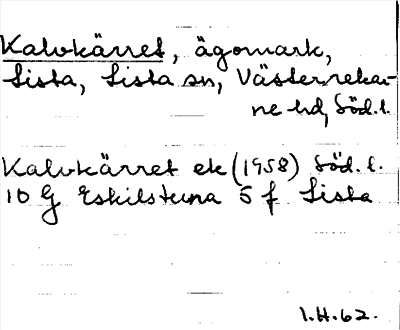 Kalvkärret, ägomark,
Lista, Lista sn, Västerrekar-
ne hd, Söd. l.
Kalvkärret ek (1958) Söd. l.
10 G Eskilstuna 5 f Lista
1.H.62.